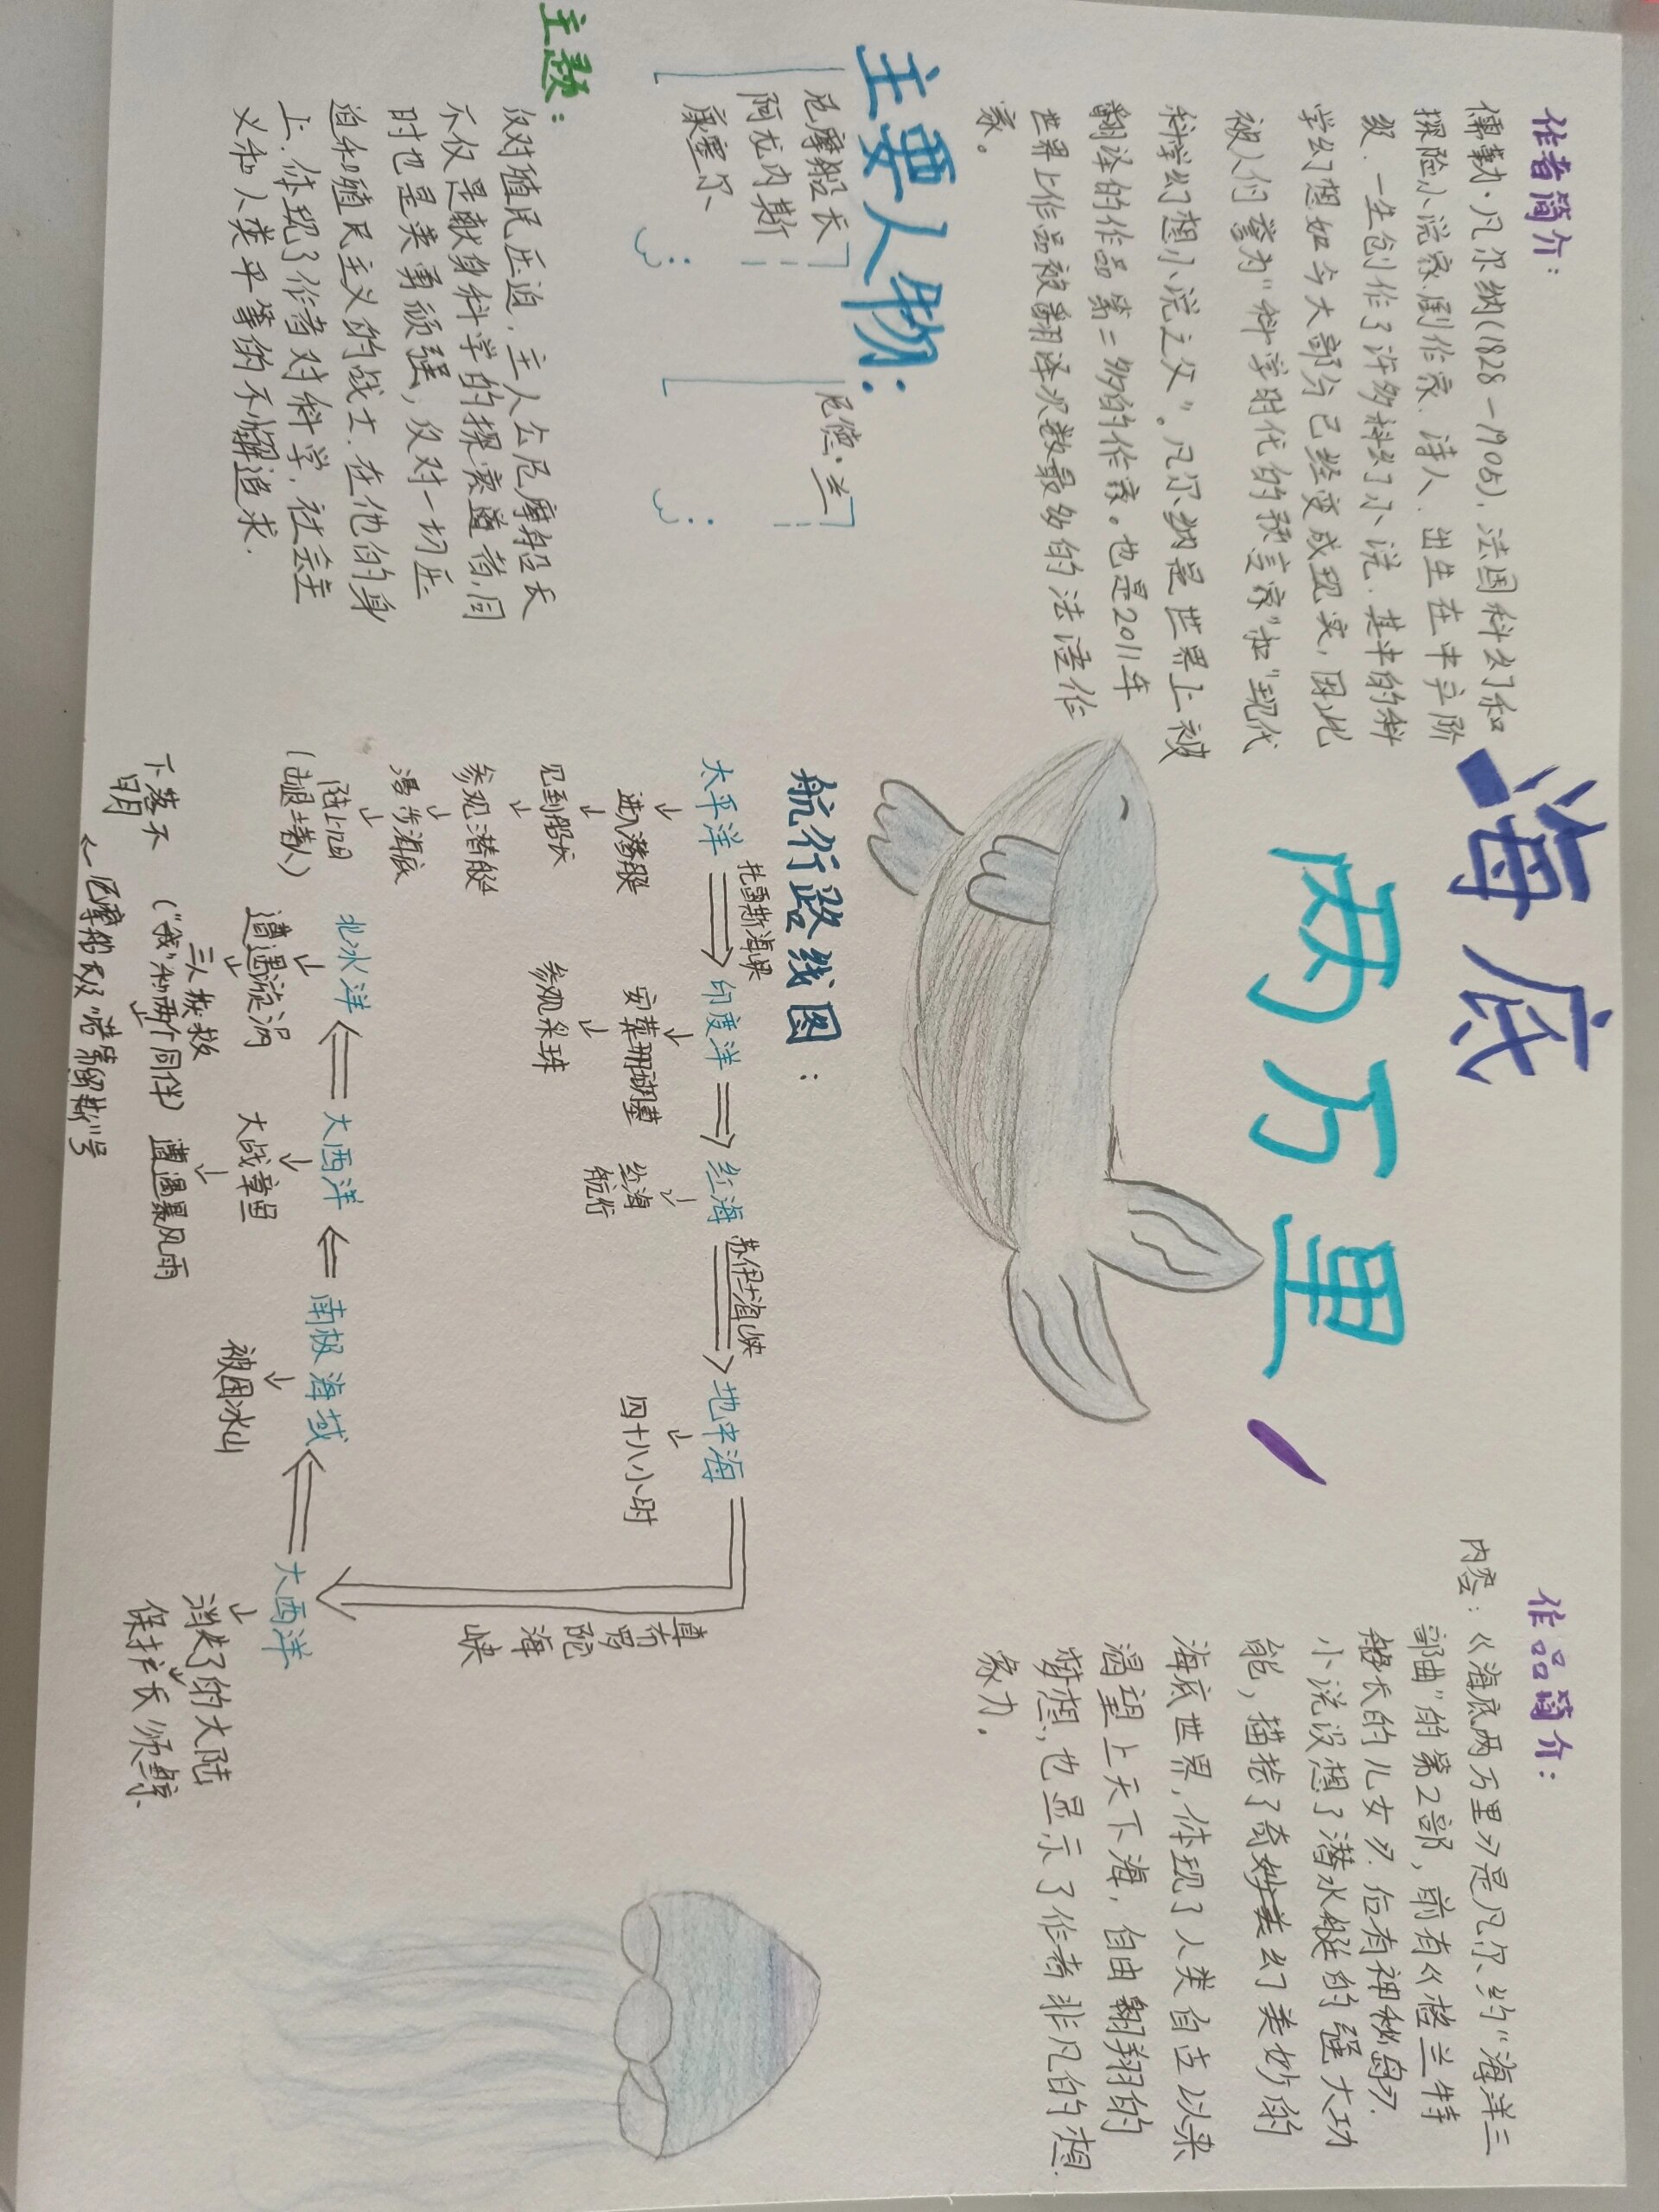 海底
两万里
作者简介：
儒勒·凡尔纳(1828-1905)，法国科幻和
探险小说家剧作家、诗人、出生在中产阶
级．一生创作了许多科幻小说．其中的科
学幻想如今大部分已经变成现实，因此
被人们誉为"科学时代的预言家"和"现代
科学幻想小说之父"。凡尔纳是世界上被
翻译的作品第二多的作家。也是2011年
世界上作品被翻译次数最多的法语作
家。
主要人物：
尼摩船长
阿龙内斯
康塞尔
尼德·兰
主题：
反对殖民压迫．主人公尼摩船长
不仅是献身科学的探索者,同
时也是英勇顽强，反对一切压
迫和殖民主义的战士．在他的身
上，体现了作者对科学，社会主
义和人类平等的不懈追求．
作品简介：
内容：《海底两万里》是凡尔纳"海洋三
部曲"的第2部，前有《格兰特
船长的儿女》．后有神秘岛》．
小说设想了潜水艇的强大功
能，描绘了奇妙美幻美妙的
海底世界，体现了人类自古以来
渴望上天下海，自由翱翔的
梦想，也显示了作者非凡的想
象力．
航行路线图：
太平洋 托雷斯海峡 ⇒ 印度洋 ⇒ 红海 苏伊士海峡 ⇒ 地中海
↓ 进入潜艇
↓ 见到船长
↓ 参观潜艇
↓ 漫步海底
↓ 陆上几日
(击退土著人)
↓ 安葬珊瑚墓
↓ 参观采珠
↓ 红海
航行
↓ 四十八小时
直布罗陀海峡
北冰洋 ⇐ 大西洋 ⇐ 南极海域 ⇐ 大西洋
↓ 消失了的大陆
↓ 保护长须鲸
↓ 被困冰山
↓ 大战章鱼
↓ 遭遇暴风雨
↓ 遭遇漩涡
↓ 三人获救
("我"和两个同伴)
↓ 尼摩船长及"诺第留斯"号
下落不
明